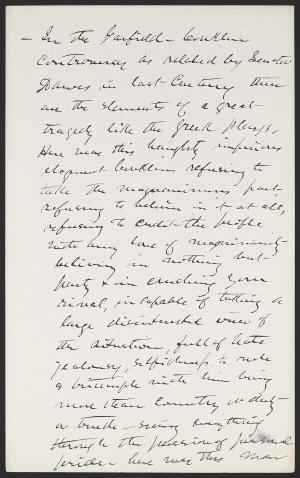 – In the Garfield – Conklin
controversy as related by Senator
Dawes in last Century there
are the elements of a great
tragedy like the Greek plays.
Here was this haughty imperious
eloquent Conklin refusing to
take the magnanimous part,
refusing to believe in it at all,
refusing to credit the people
with any love of magnanimity
believing in nothing but
party & in crushing your
rival, incapable of taking a
large disinterested view of
the situation, full of hate
jealousy, selfishness, to rule
a triumph with him being
more than country or duty
or truth – seeing everything
through the of personal
pride – here was this man